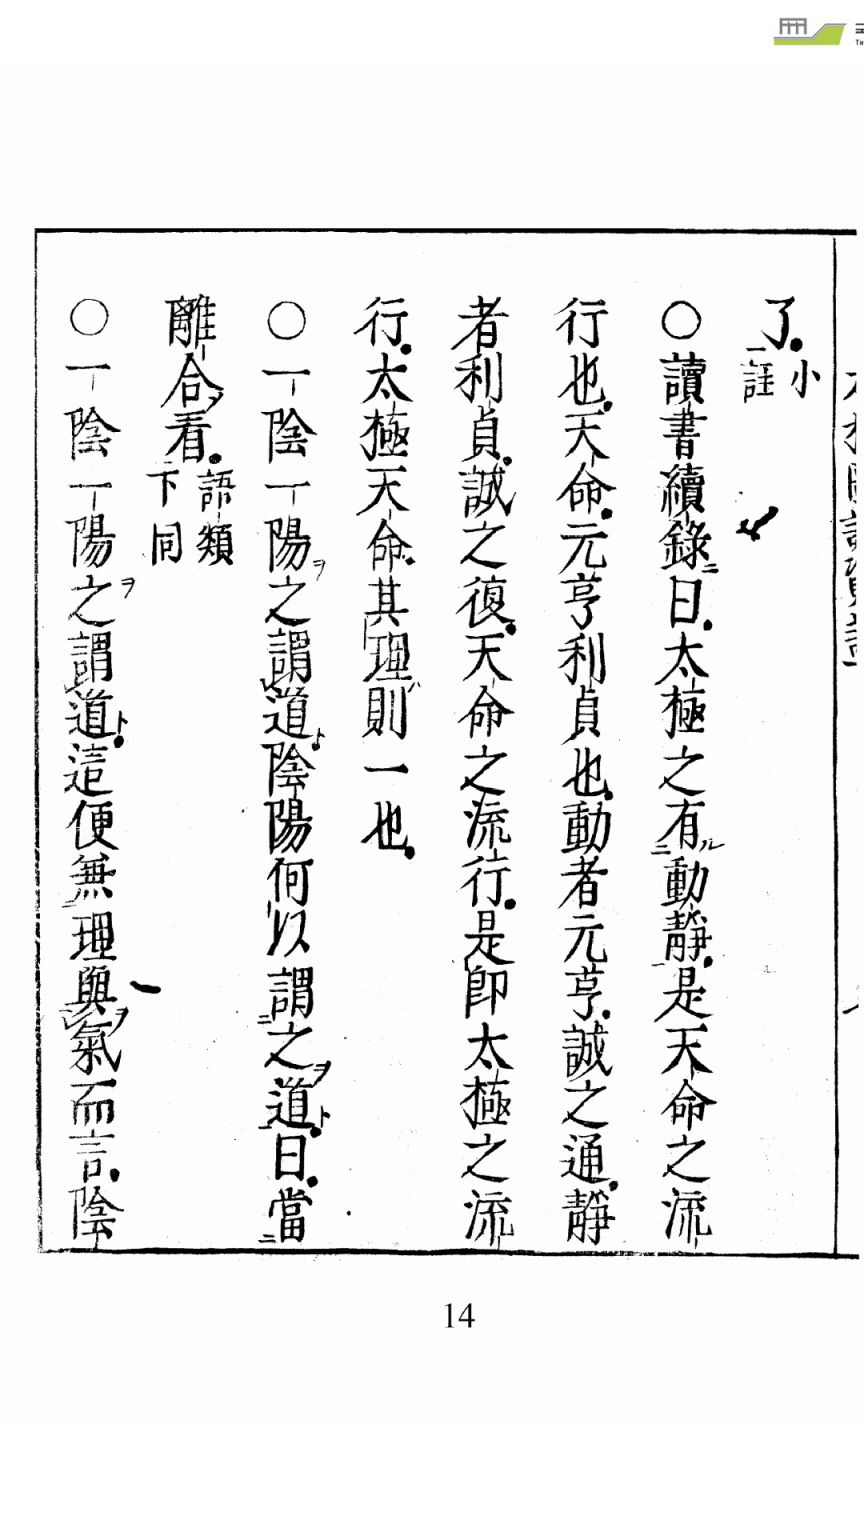 了。小註
○讀書續錄曰。太極之有動靜。是天命之流
行也。天命。元亨利貞也。動者元亨。誠之通。靜
者利貞。誠之復。天命之流行。是卽太極之流
行。太極天命。其理則一也。
○一陰一陽之謂道。陰陽何以謂之道。曰。當
離合看。語類下同
○一陰一陽之謂道。這便兼理與氣而言。陰
14